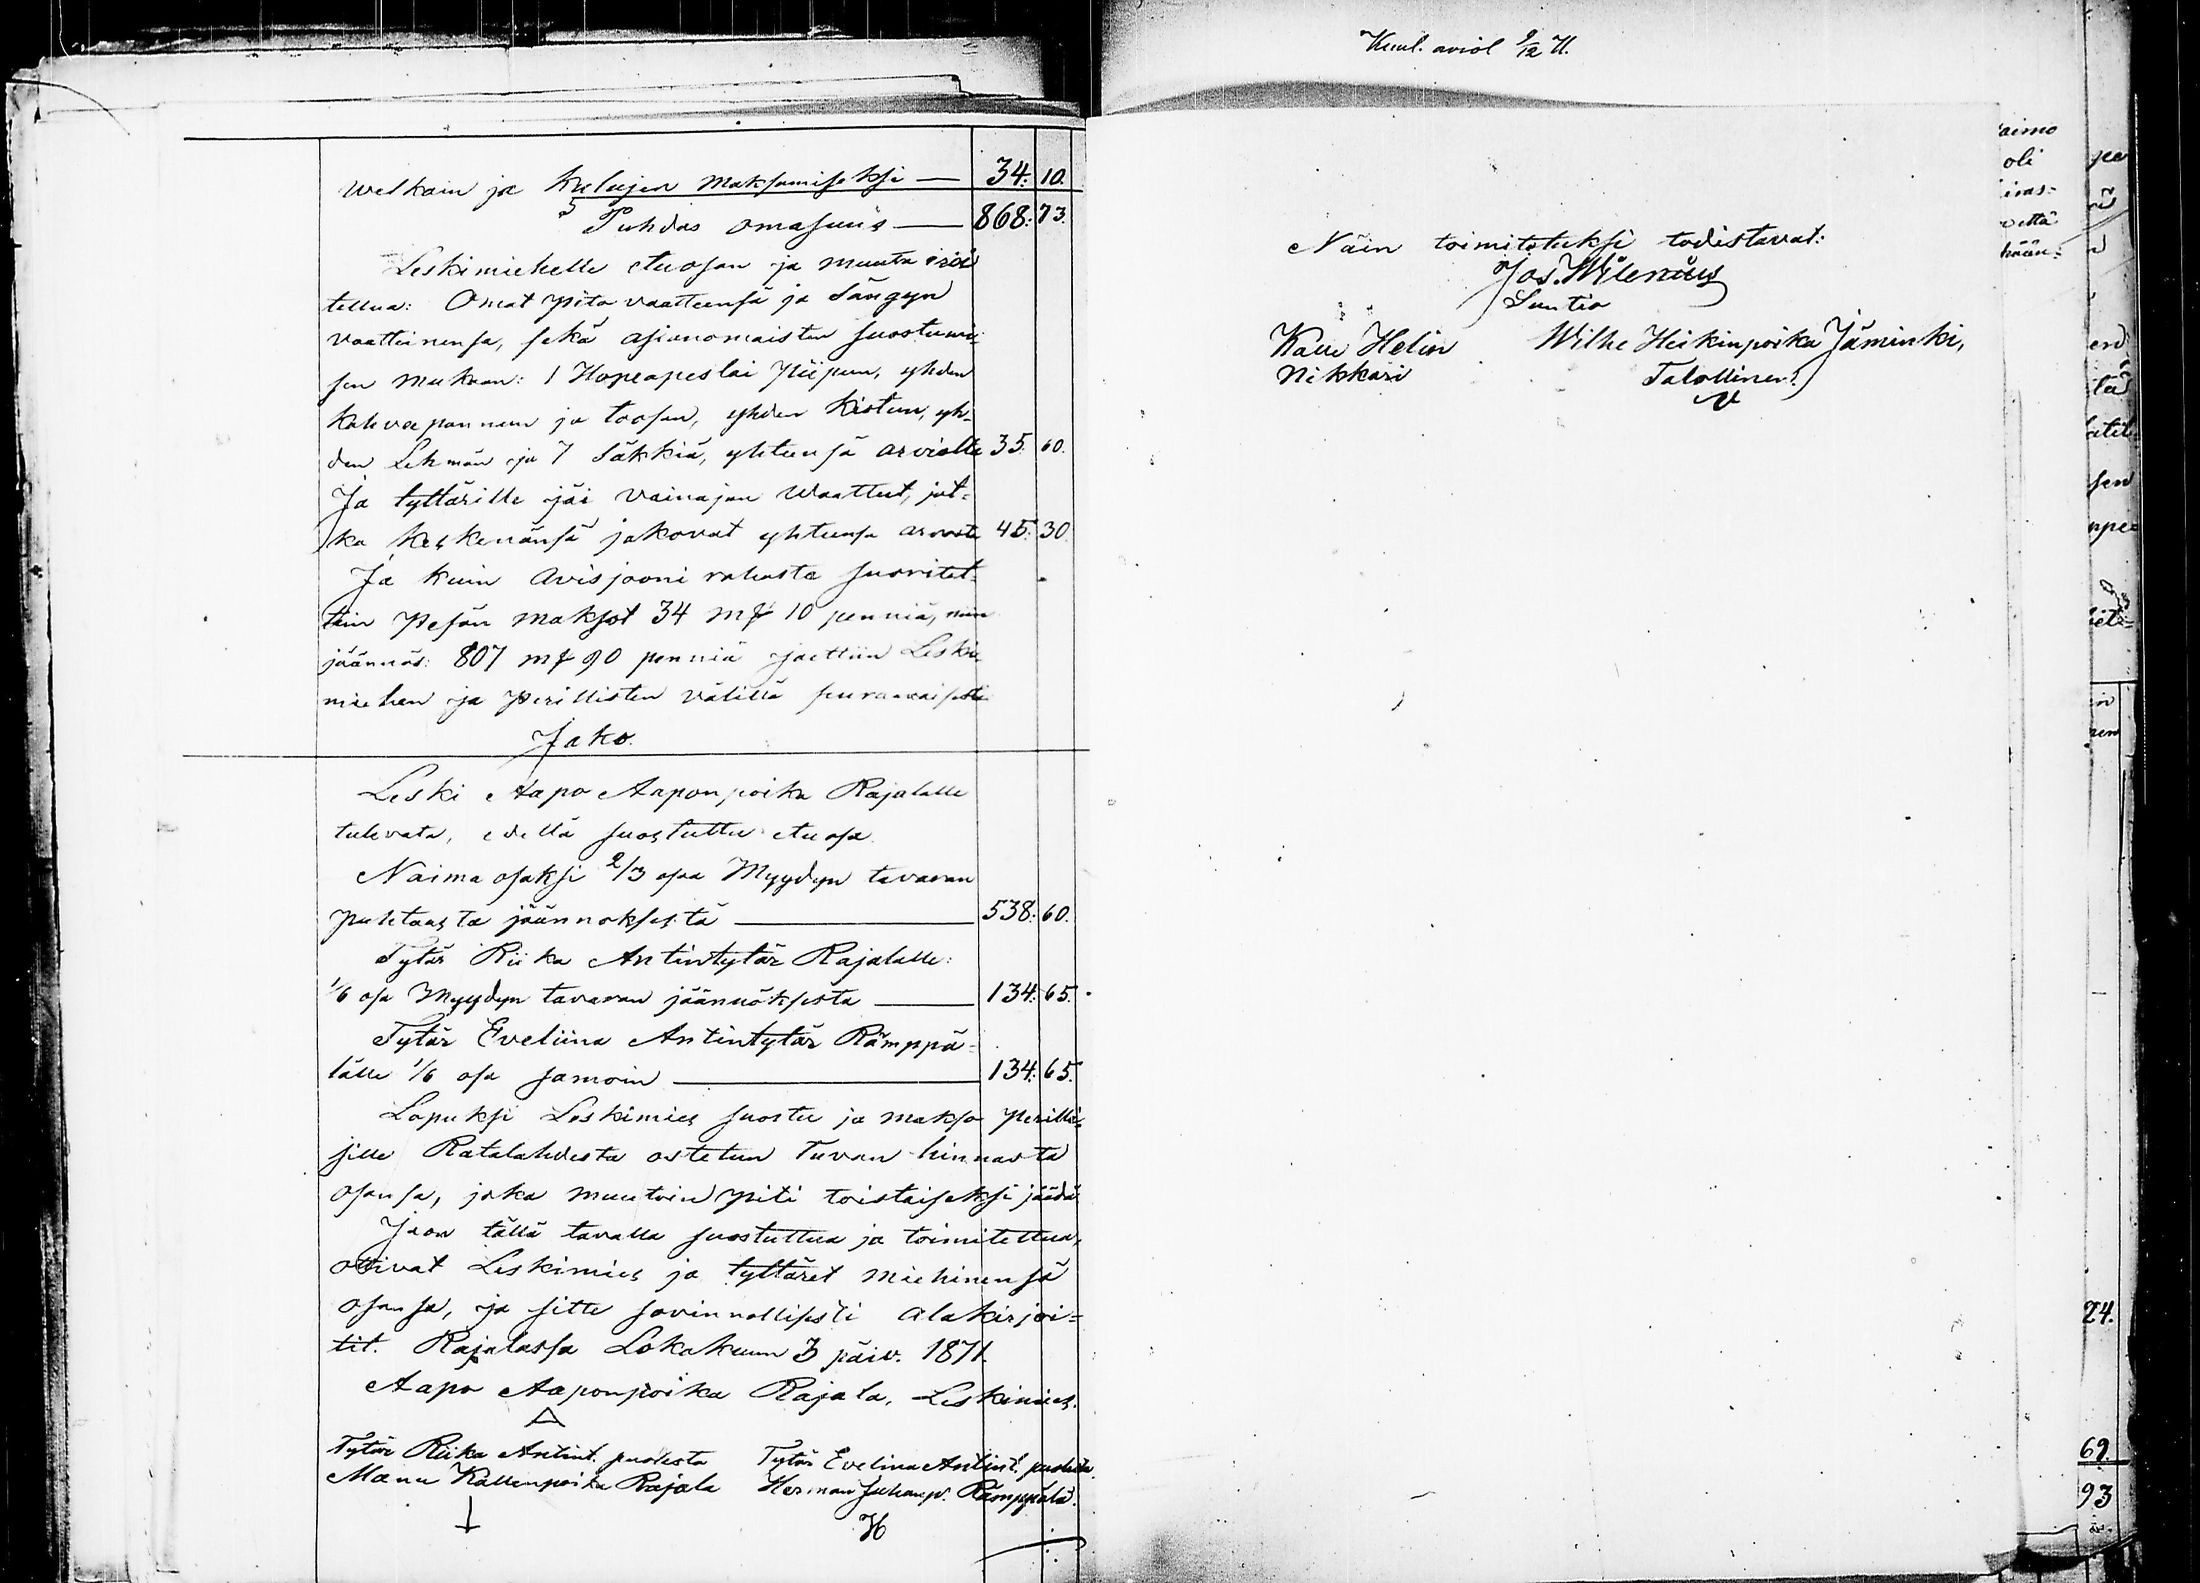 Welkain ja Kulujen Maksamiseksi — 34: 10.
Puhdas omasuus — 868: 73.
Leskimiehelle etuosan ja muuta eroi
tellua: Omat pito vaatteensä ja Sängyn
vaatteinensa, sekä asianomaisten suostumi-
sen mukaan: 1 Hopeapeslai Piipun, yhden
Kahvepannun ja toosan, yhden Kistun, yh-
den Lehmän ja 7 Säkkiä, yhteensä arviolta 35: 60.
Ja tyttärille jäi vainajan Waattut, jot-
ka keskenänsä jakovat yhteensä arvosta 45: 30
Ja kuin Avisjooni rahasta suoritet-
tiin Pesän maksot 34 mk 10 penniä, niin
jäännös: 807 mk 90 penniä jaettiin Leski
miehen ja Perillisten välillä seuraavaisesti
Jako.
Leski Aapo Aaponpoika Rajalalle
tulevata, edellä suostuttu etuosa.
Naima osaksi 2/3 osaa Myydyn tavaran
puhtaasta jäännoksesta — 538: 60.
Tytär Riika Antintytär Rajalalle:
1/6 osa Myydyn tavaran jäännöksesta — 134: 65.
Tytär Eveliina Antintytär Rämppä-
lälle 1/6 osa samoin — 134: 65.
Lopuksi Leskimies suostu ja maksa Perilli-
sille Ratalahdesta ostetun Tuvan hinnasta
osansa, joka muutoin piti toistaiseksi jäädä
Ja on tällä tavalla suostuttua ja toimitettua,
ottivat Leskimies ja tyttäret miehinensä
osansa, ja sitte sovinnollisesti alakirjoi-
tit. Rajalassa Lokakuun 3 päiv. 1871.
Aapo Aaponpoika Rajala, Leskimies.
Tytär Riika Antint. puolesta Tytär Evelina Antint. puolesta
Manu Kallenpoika Rajala Herman Juhanp. Rämppälä.
H
Kuul. aviol 9/12 71.
Näin toimitetuksi todistavat:
Jos. Wilenius
Suntio
Kalle Helin Wilhe Heikinpoika Jäminki,
Nikkari Talollinen.
aimo
oli
että
hään-
24.
69.
93